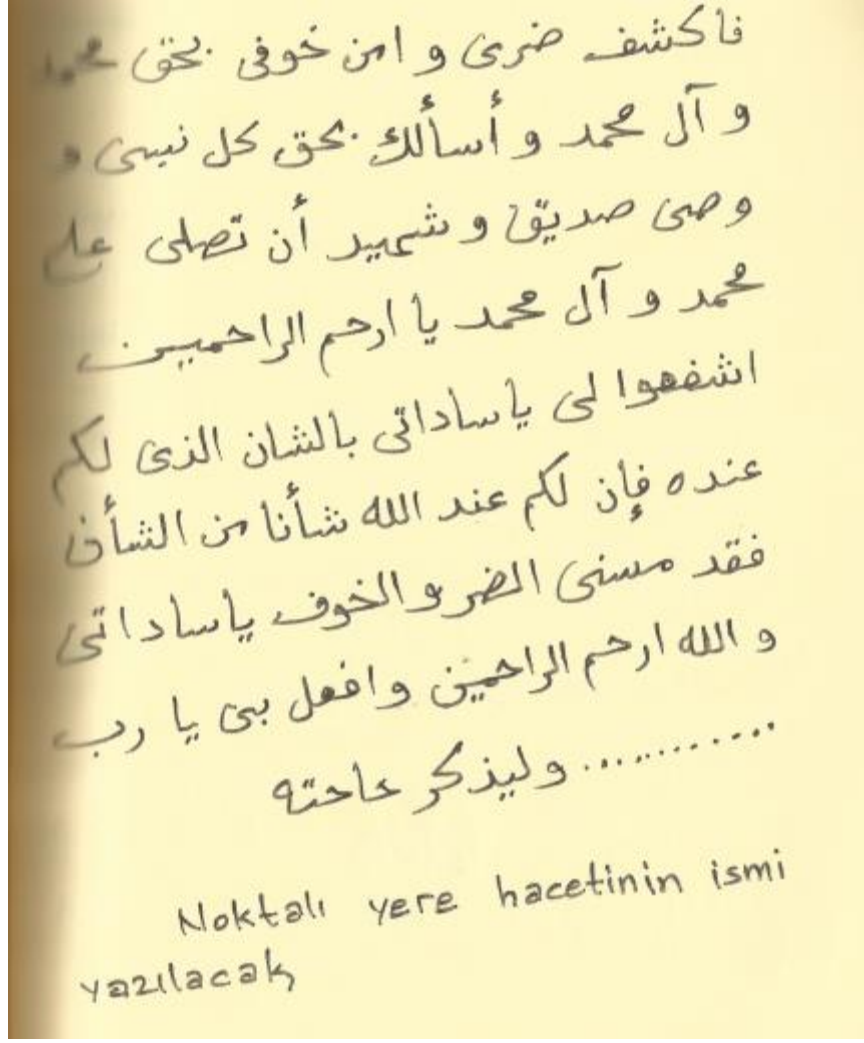 فاكشف ضرى و امن خوفى بحق محمد
و آل محمد و أسألك بحق كل نبى و
وصى صديق و شهيد أن تصلى على
محمد و آل محمد يا ارحم الراحمين
اشفعوا لى ياساداتى بالشان الذى لكم
عنده فإن لكم عند الله شأنا من الشأن
فقد مسنى الضر و الخوف ياساداتى
و الله ارحم الراحمين وافعل بى يا رب
............ وليذكر حاحته
Noktalı yere hacetinin ismi
yazılacak,